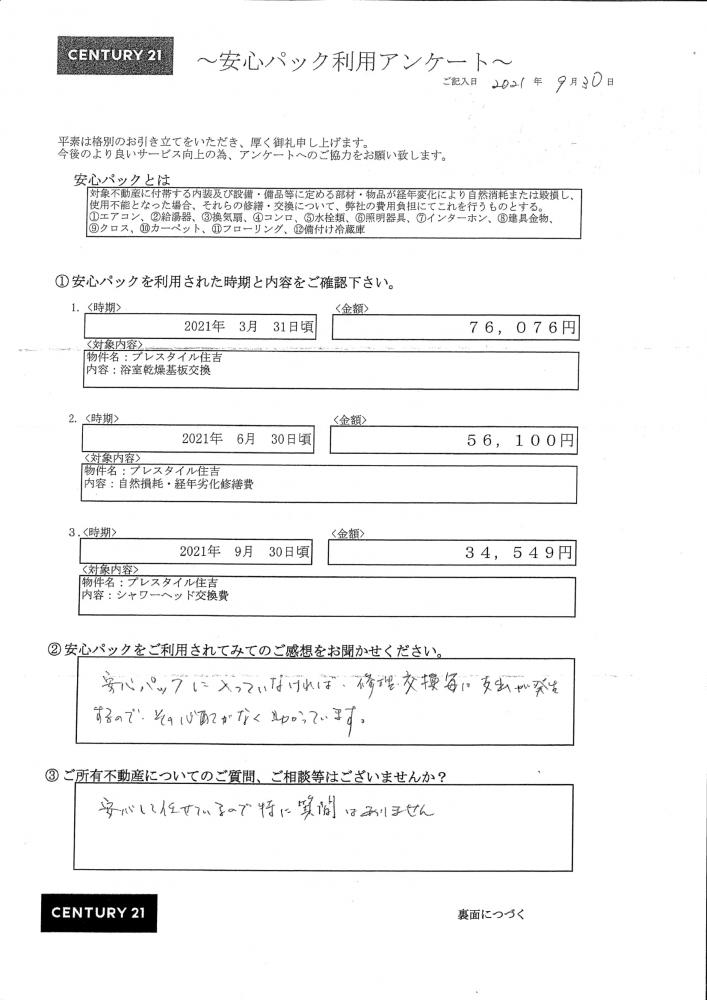 CENTURY 21
～安心パック利用アンケート～
ご記入日 2021 年 9 月 30 日
平素は格別のお引き立てをいただき、厚く御礼申し上げます。
今後のより良いサービス向上の為、アンケートへのご協力をお願い致します。
安心パックとは
対象不動産に付帯する内装及び設備・備品等に定める部材・物品が経年変化により自然消耗または毀損し、
使用不能となった場合、それらの修繕・交換について、弊社の費用負担にてこれを行うものとする。
①エアコン、②給湯器、③換気扇、④コンロ、⑤水栓類、⑥照明器具、⑦インターホン、⑧建具金物、
⑨クロス、⑩カーペット、⑪フローリング、⑫備付け冷蔵庫
①安心パックを利用された時期と内容をご確認下さい。
1. 〈時期〉 〈金額〉
2021年 3月 31日頃 76,076円
〈対象内容〉
物件名：プレスタイル住吉
内容：浴室乾燥基板交換
2. 〈時期〉 〈金額〉
2021年 6月 30日頃 56,100円
〈対象内容〉
物件名：プレスタイル住吉
内容：自然損耗・経年劣化修繕費
3. 〈時期〉 〈金額〉
2021年 9月 30日頃 34,549円
〈対象内容〉
物件名：プレスタイル住吉
内容：シャワーヘッド交換費
②安心パックをご利用されてみてのご感想をお聞かせください。
安心パックに入っていなければ、修理、交換毎に支出が発生
するので、その心配がなく助かっています。
③ご所有不動産についてのご質問、ご相談等はございませんか？
安心して任せているので特に質問はありません
CENTURY 21
裏面につづく